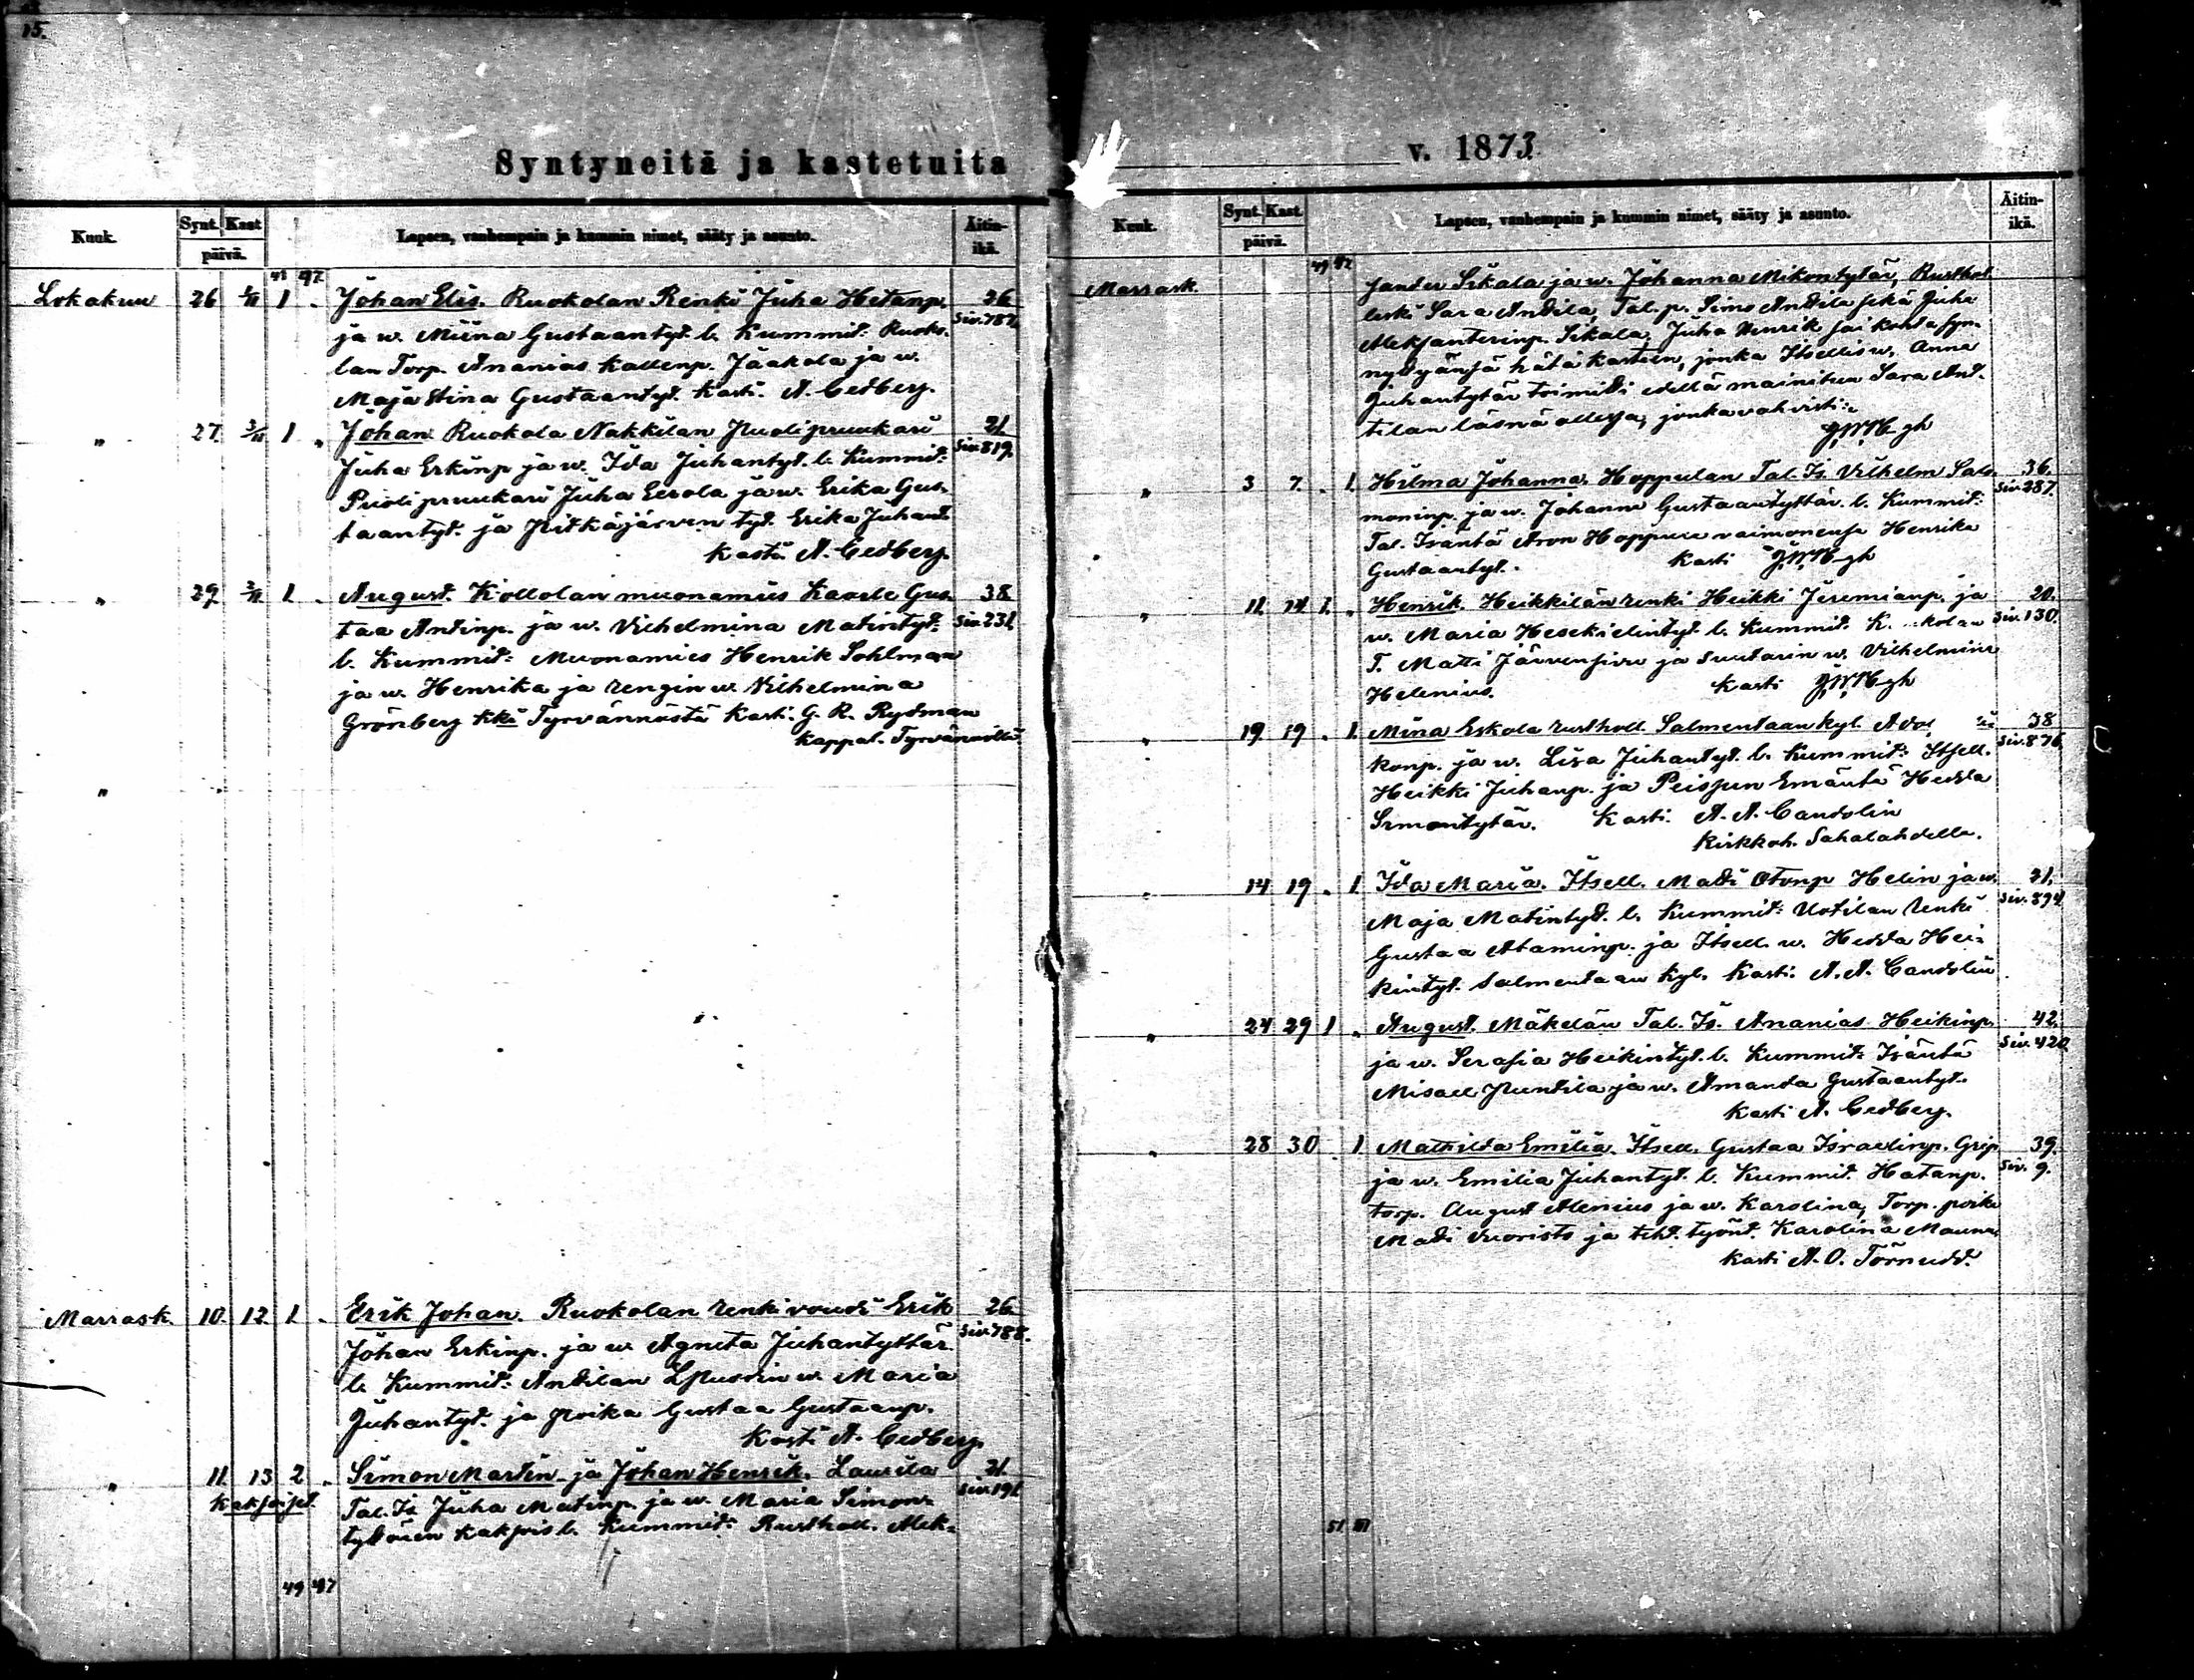 15.
Syntyneitä ja kastetuita
Kuuk. Synt. Kast. päivä. Lapsen, vanhempain ja kummin nimet, sääty ja asunto. Äitin-ikä.
45 47
Lokakuu 26 2/11 1 „ Johan Elis. Ruokolan Renki Juha Hetanp. 36
ja w. Miina Gustaantyt. l. Kummit: Ruoko- Siv. 787.
lan Torp. Ananias Kallenp. Jaakola ja w.
Maja Stina Gustaantyt. Kasti. A. Cedberg.
„ 27 3/11 1 „ Johan Ruokola Nakkilan Puolipruukari 21.
Juha Erkinp ja w. Ida Juhantyt. l. Kummit: Siv. 819.
Puolipruukari Juha Eerola ja w. Erika Gus-
taantyt. ja Pitkäjärven tyt. Erika Juhant.
Kasti A. Cedberg.
„ 29 2/11 1 „ August. Kollolan muonamies Kaarle Gus- 38
taa Antinp. ja w. Vilhelmina Matintyt. Siv. 231.
l. Kummit: Muonamies Henrik Sohlman
ja w. Henrika ja rengin w. Vilhelmina
Grönberg kki Tyrvännöstä Kasti. G. R. Rydman
Kappal. Tyrvännöllä
„
Marrask. 10. 12. 1 „ Erik Johan. Ruokolan renkivouti Erik 26.
Johan Erkinp. ja w. Agneta Juhantyttär. Siv. 788.
l. Kummit: Antilan w. Maria
Juhantyt. ja poika Gustaa Gustaanp.
Kasti A. Cedberg.
„ 11. 13 2 „ Simon Martin ja Johan Henrik. Laurila 31.
Kaksoiset. Tal. Is. Juha Matinp. ja w. Maria Simon- Siv. 191.
tyt öien kaksois l. Kummit: Rusthol. Alek-
49 47
v. 1873.
Kuuk. Synt. Kast. päivä. Lapsen, vanhempain ja kummin nimet, sääty ja asunto. Äitin-ikä.
49 47
Marrask. santer Sikala ja w. Johanna Mikontytär, Rusthol.
leski Sara Antila, Tal. p. Simo Antila sekä Juha
Aleksanterinp. Sikala. Juha Henrik sai kohta syn-
nyttyänsä hätäkasteen, jonka Itsellis w. Anna
Juhantytär toimitti edellä mainitun Sara An-
tilan läsnä ollessa, jonka vahvisti:
„ 3 7. „ 1. Hilma Johanna. Hoppulan Tal. Is. Vilhelm Salo- 36.
moninp. ja w. Johanna Gustaantyttär. l. Kummit: Siv. 287.
Tal. Isäntä Aron Hoppu vaimonensa Henrika
Gustaantyt. Kasti
„ 11. 14 1. „ Henrik. Heikkilän renki Heikki Jeremianp. ja 20.
w. Maria Hesekielintyt. l. Kummit. Siv. 130.
T. Matti Järvensivu ja Suutarin w. Vilhelmina
Helenius. Kasti
„ 19 19 „ 1. Mina Eskola rusthol. Salmentaan kyl. 38
konp. ja w. Lisa Juhantyt. l. Kummit: Itsell. Siv. 876.
Heikki Juhanp. ja Peispun Emäntä Hedda
Simontytär. Kasti. A. A. Candolin
Kirkkoh. Sahalahdella.
„ 14 19 „ 1. Ida Maria. Itsell. Matti Otonp Helin ja w. 31.
Maja Matintyt. l. Kummit: Uotilan renki Siv. 894.
Gustaa Ataminp. ja Itsell. w. Hedda Hei-
kintyt. Salmentaan kyl. Kasti. A. A. Candolin
„ 24 29 1 „ August. Mäkelän Tal. Is. Ananias Heikinp. 42.
ja w. Serafia Heikintyt. l. Kummit: Isäntä Siv. 420.
Misael Puntila ja w. Amanda Gustaantyt.
Kasti A. Cedberg.
„ 28 30 „ 1 Mathilda Emilia. Itsell. Gustaa Israelinp. Grip 39.
ja w. Emilia Juhantyt. l. Kummit. Hatanp. Siv. 9.
torp. August Alenius ja w. Karolina, Torp. poika
Matti Vuoristo ja teht. työnt. Karolina Mauna
Kasti A. O. Törnudd.
51